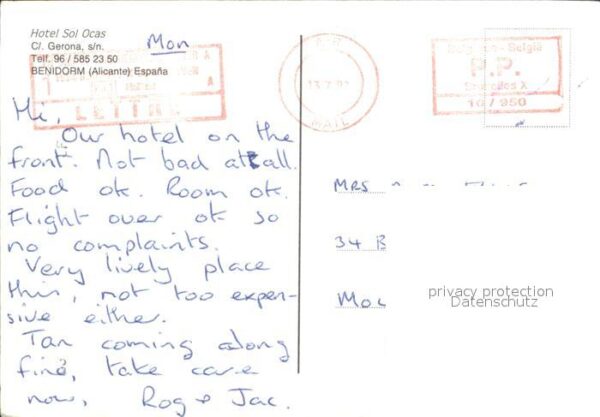 Hotel Sol Ocas
C/. Gerona, s/n.
Telf. 96 / 585 23 50
BENIDORM (Alicante) España
Mon
LETTRE
MAIL
Belgique - België
P.P.
Bruxelles X
10 / 950
Hi,
Our hotel on the
front. Not bad at all.
Food ok. Room ok.
Flight over ok so
no complaints.
Very lively place
this, not too expen-
sive either.
Tan coming along
fine, take care
now, Rog + Jac.
MRS
34 B
Moc
privacy protection
Datenschutz